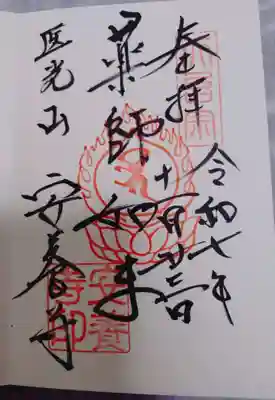 奉拝
令和七年
十一月廿三日
薬師如来
医光山
安養寺
安養寺印